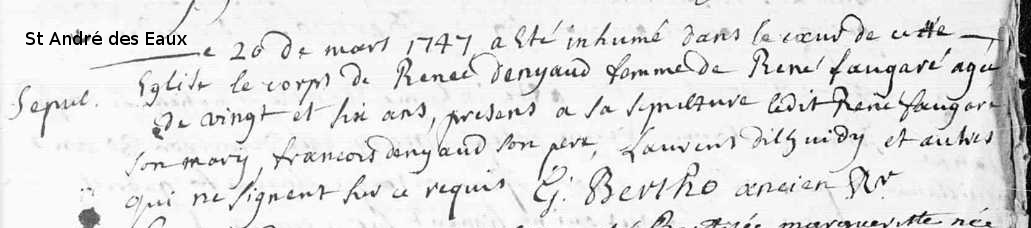 St André des Eaux
Le 20 de mars 1747 a Eté inhumé dans le cœur de cette
Sepul. Eglise le corps de Renée Denyaud femme de René faugaré agée
De vingt et six ans, presens a sa sepulture ledit René faugaré
son mary, francois denyaud son pere, Laurens et autres
qui ne signent sur ce requis G: Bertho ancien Rr.
margueritte née